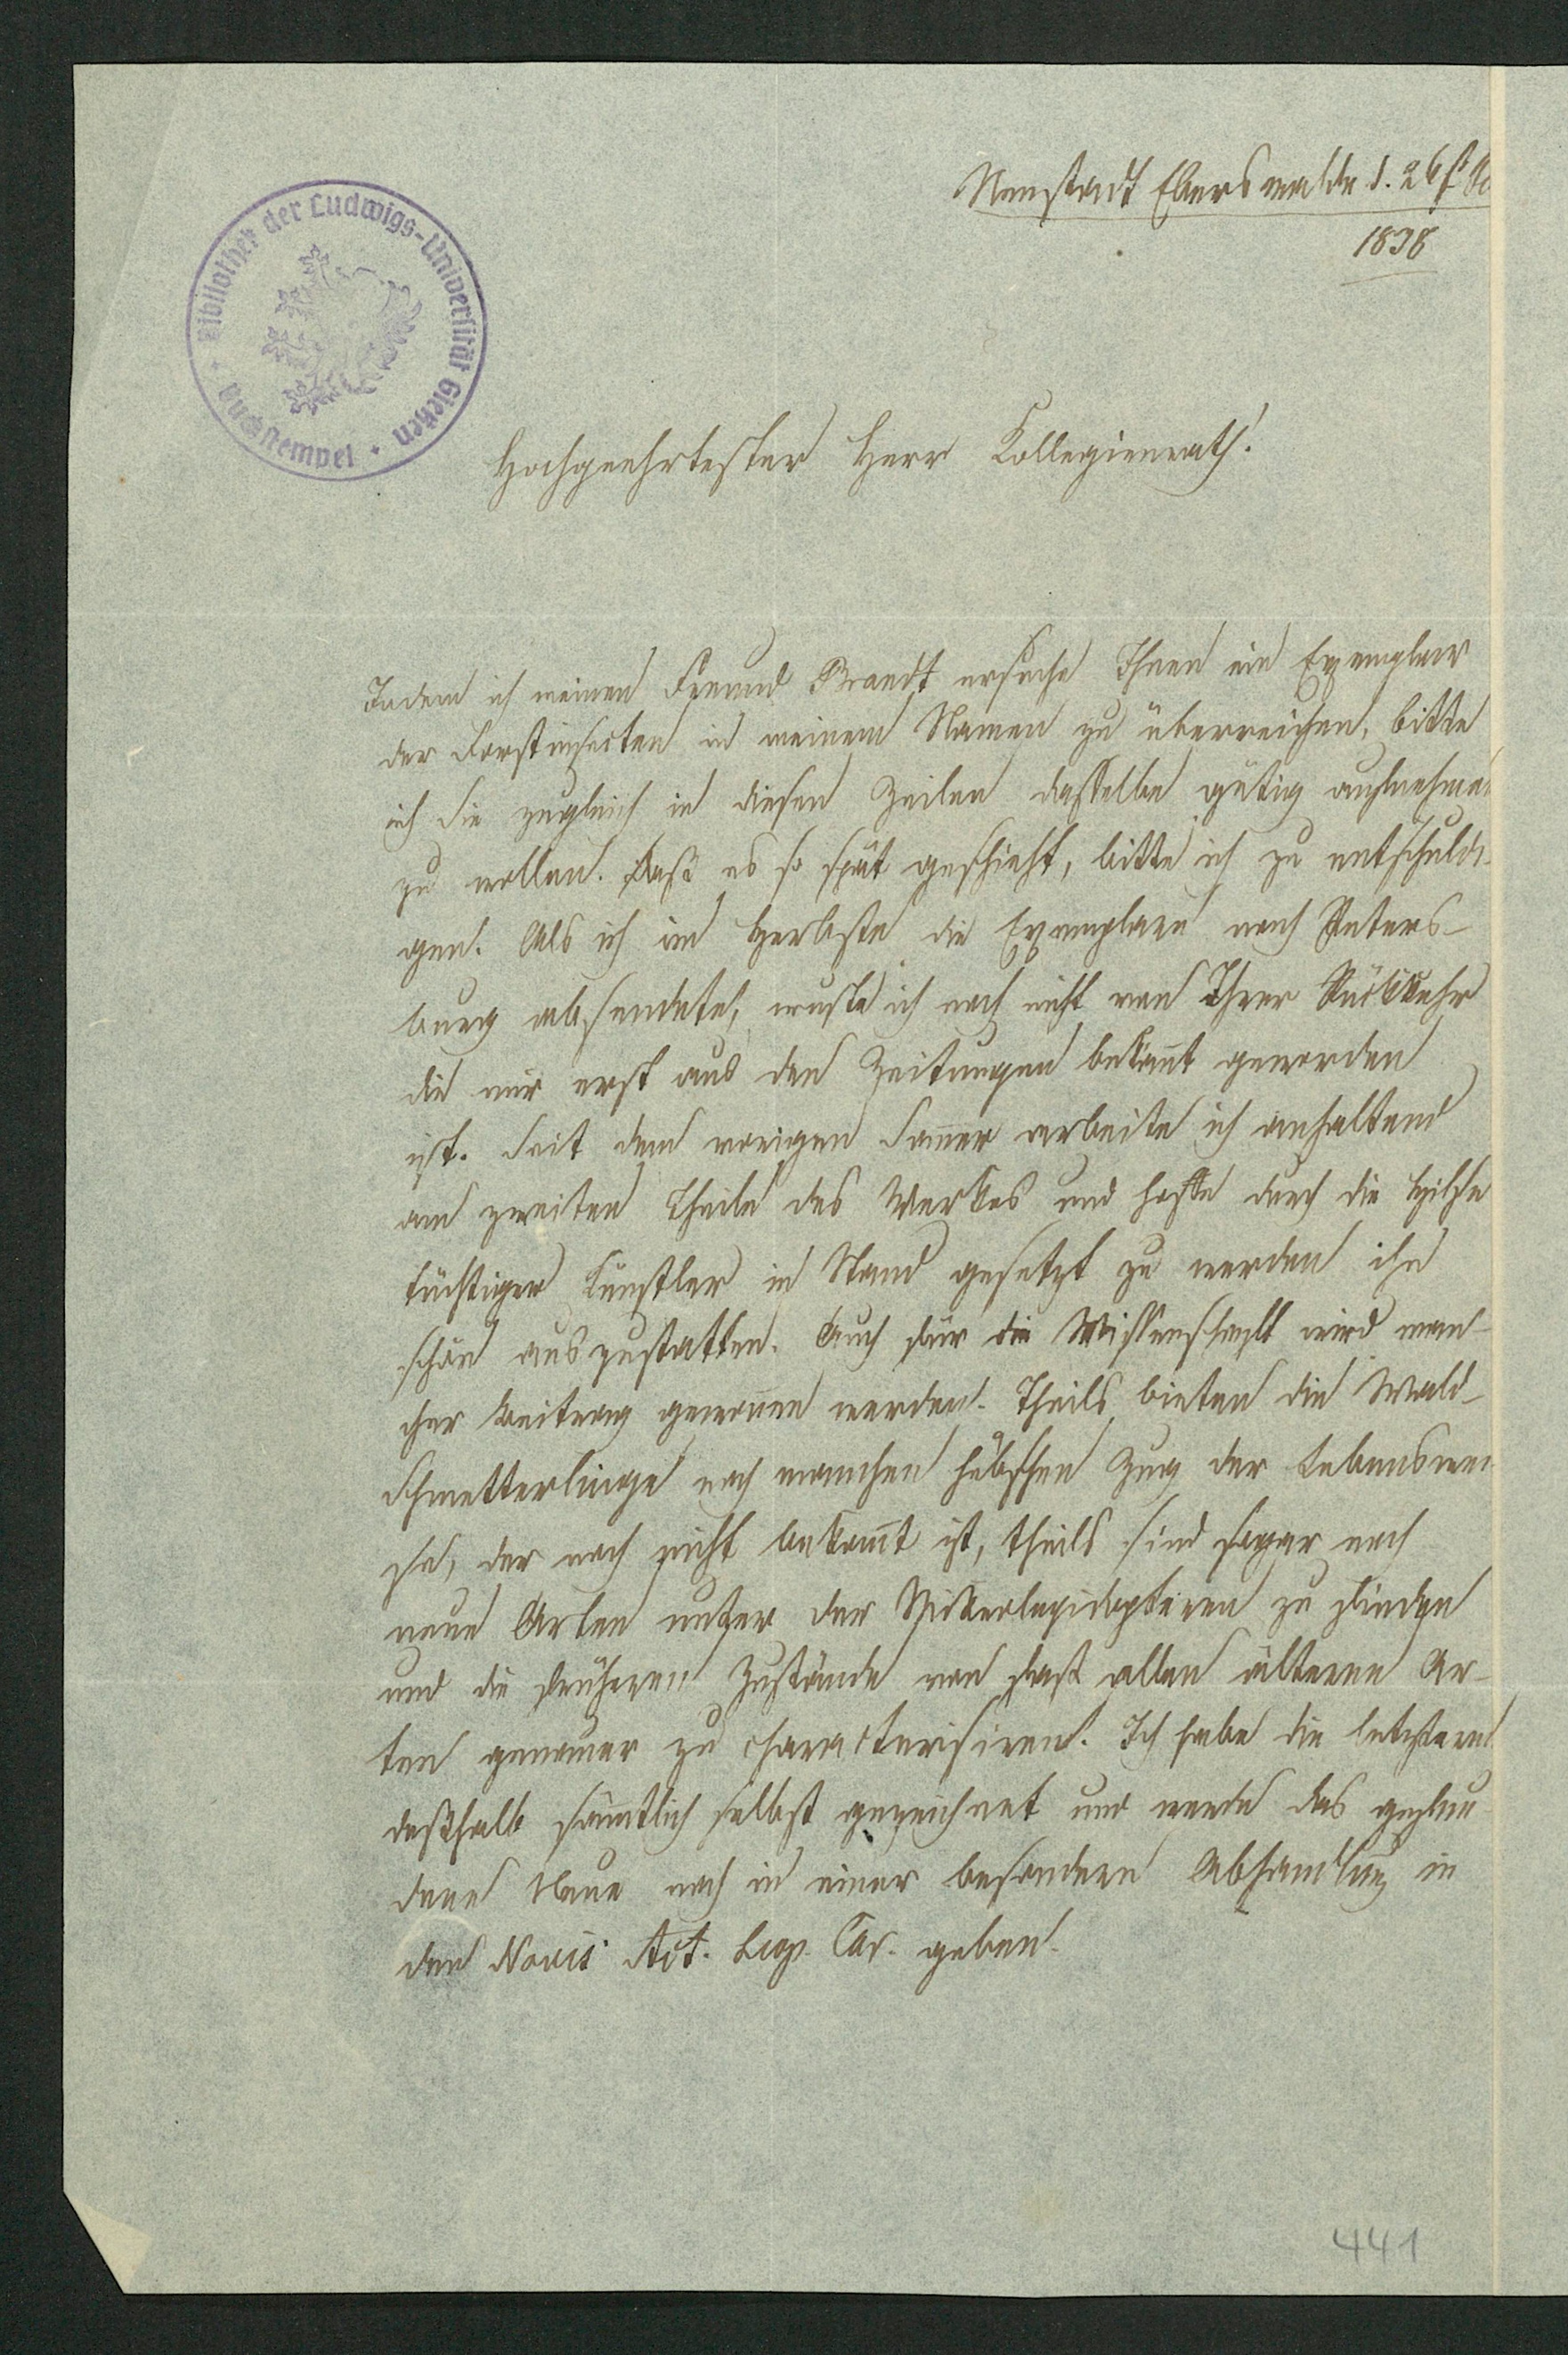 Neustadt Eberswalde d. 26st
1838
Bibliothek der Ludwigs-Universität Gießen
Tauschstempel
Hochgeehrtester Herr Collegienrath!
Indem ich meinen Freund Brandt ersuche Ihnen ein Exemplar
der Forstinsecten in meinem Namen zu überreichen, bitte
ich Sie zugleich in diesen Zeilen dasselbe gütig aufnehmen
zu wollen. Daß es so spät geschieht, bitte ich zu entschuldi-
gen. Als ich im Herbste die Exemplare nach Peters-
burg absendete, wuste ich noch nicht von Ihrer Rückkehr
die mir erst aus den Zeitungen bekan̄t geworden
ist. Seit dem vorigen Som̄er arbeite ich anhaltend
am zweiten Theile des Werkes und hoffe durch die Hilfe
tüchtiger Künstler in Stand gesetzt zu werden ihn
schön auszustatten. Auch für die Wissenschaft wird man-
cher Beitrag gewon̄en werden. Theils bieten die Wald-
schmetterlinge noch manchen hübschen Zug der Lebenswei-
se, der noch nicht bekan̄t ist, theils sind sogar noch
neue Arten unter den Mikrolepidopteren zu finden
und die früheren Zustände von fast allen älteren Ar-
ten genauer zu characterisiren. Ich habe die letzteren
deßhalb säm̄tlich selbst gezeichnet und werde das gefun-
dene Neue noch in einer besondern Abhandlung in
den Novis Act. Leop. Car. geben.
441